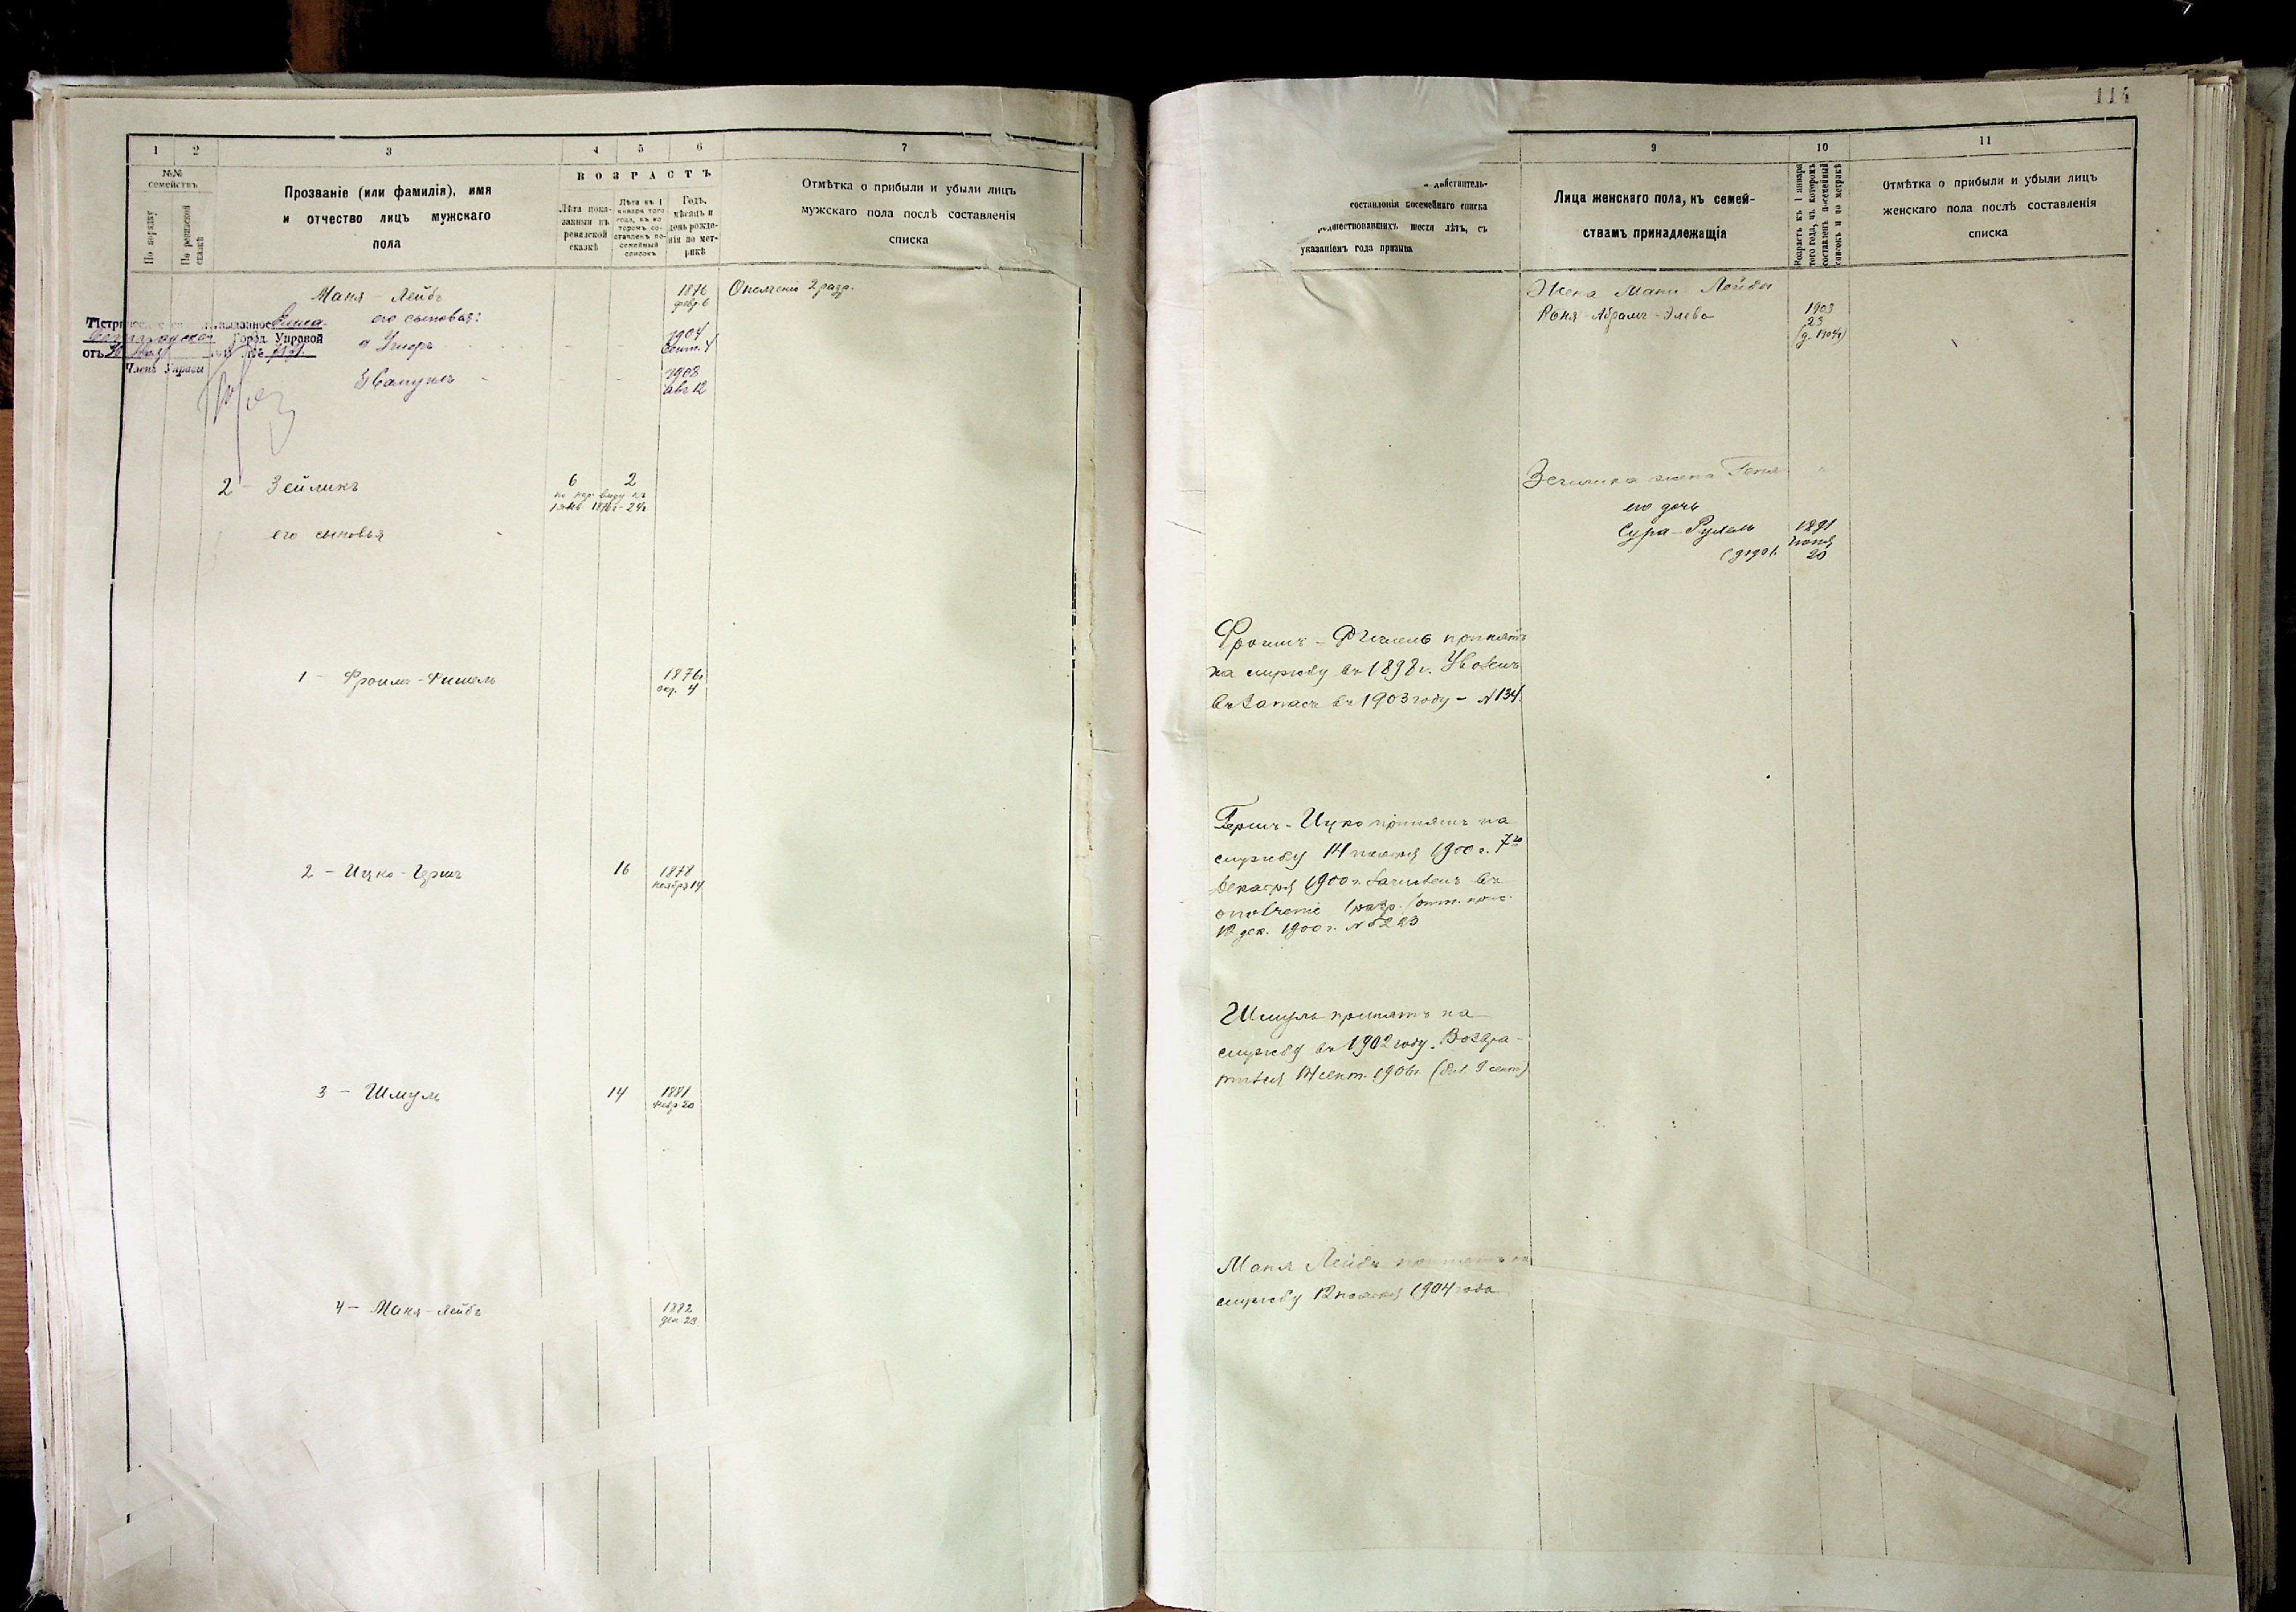 114
1 2 3 4 5 6 7
№№ семействъ
По порядку
По ревизской сказкѣ
Прозваніе (или фамилія), имя
и отчество лицъ мужскаго
пола
ВОЗРАСТЪ
Лѣта пока-
занныя въ
ревизской
сказкѣ
Лѣта къ 1
января того
года, въ ко-
торомъ со-
ставленъ по-
семейный
списокъ
Годъ,
мѣсяцъ и
день рожде-
нія по мет-
рикѣ
Отмѣтка о прибыли и убыли лицъ
мужскаго пола послѣ составленія
списка
Маня - Лейбъ 1876 февр. 6 Ополченія 2 разр.
его сыновья:
Город. Управой
отъ
Членъ Управы
1904
Сент. 4
Самуилъ 1908
авг 12
2 - Зейликъ 6 2
его сыновья
1 - Фроимъ-Фишель 1876
4
2 - Ицко-Гершъ 16 1878
ноября 14
3 - Шмуль 14 1881
20
4 - Маня-Лейбъ 1882
дек 23
9 10 11
дѣйствитель-
составленія посемейнаго списка
шести лѣтъ, съ
указаніемъ года призыва
Лица женскаго пола, къ семей-
ствамъ принадлежащія
Возрастъ къ 1 января
того года, въ которомъ
составленъ посемейный
списокъ и по метрикѣ
Отмѣтка о прибыли и убыли лицъ
женскаго пола послѣ составленія
списка
Жена Мани Лейбы
1903
23
Зейлика жена Геня
его дочь
Сура - 1891
20
Фроимъ - Фишель принятъ
на службу въ 1898 г. Уволенъ
въ запасъ въ 1903 году - № 134
Гершъ - Ицко принятъ на
службу 14 ноября 1900 г. 7го
Декабря 1900 г. зачисленъ въ
ополченіе 1 разр.
12 дек. 1900 г. №
Шмуль принятъ на
службу въ 1902 году. Возвра-
тился 14 сент. 1906 г.
Маня Лейбъ принятъ на
службу 12 ноября 1904 года